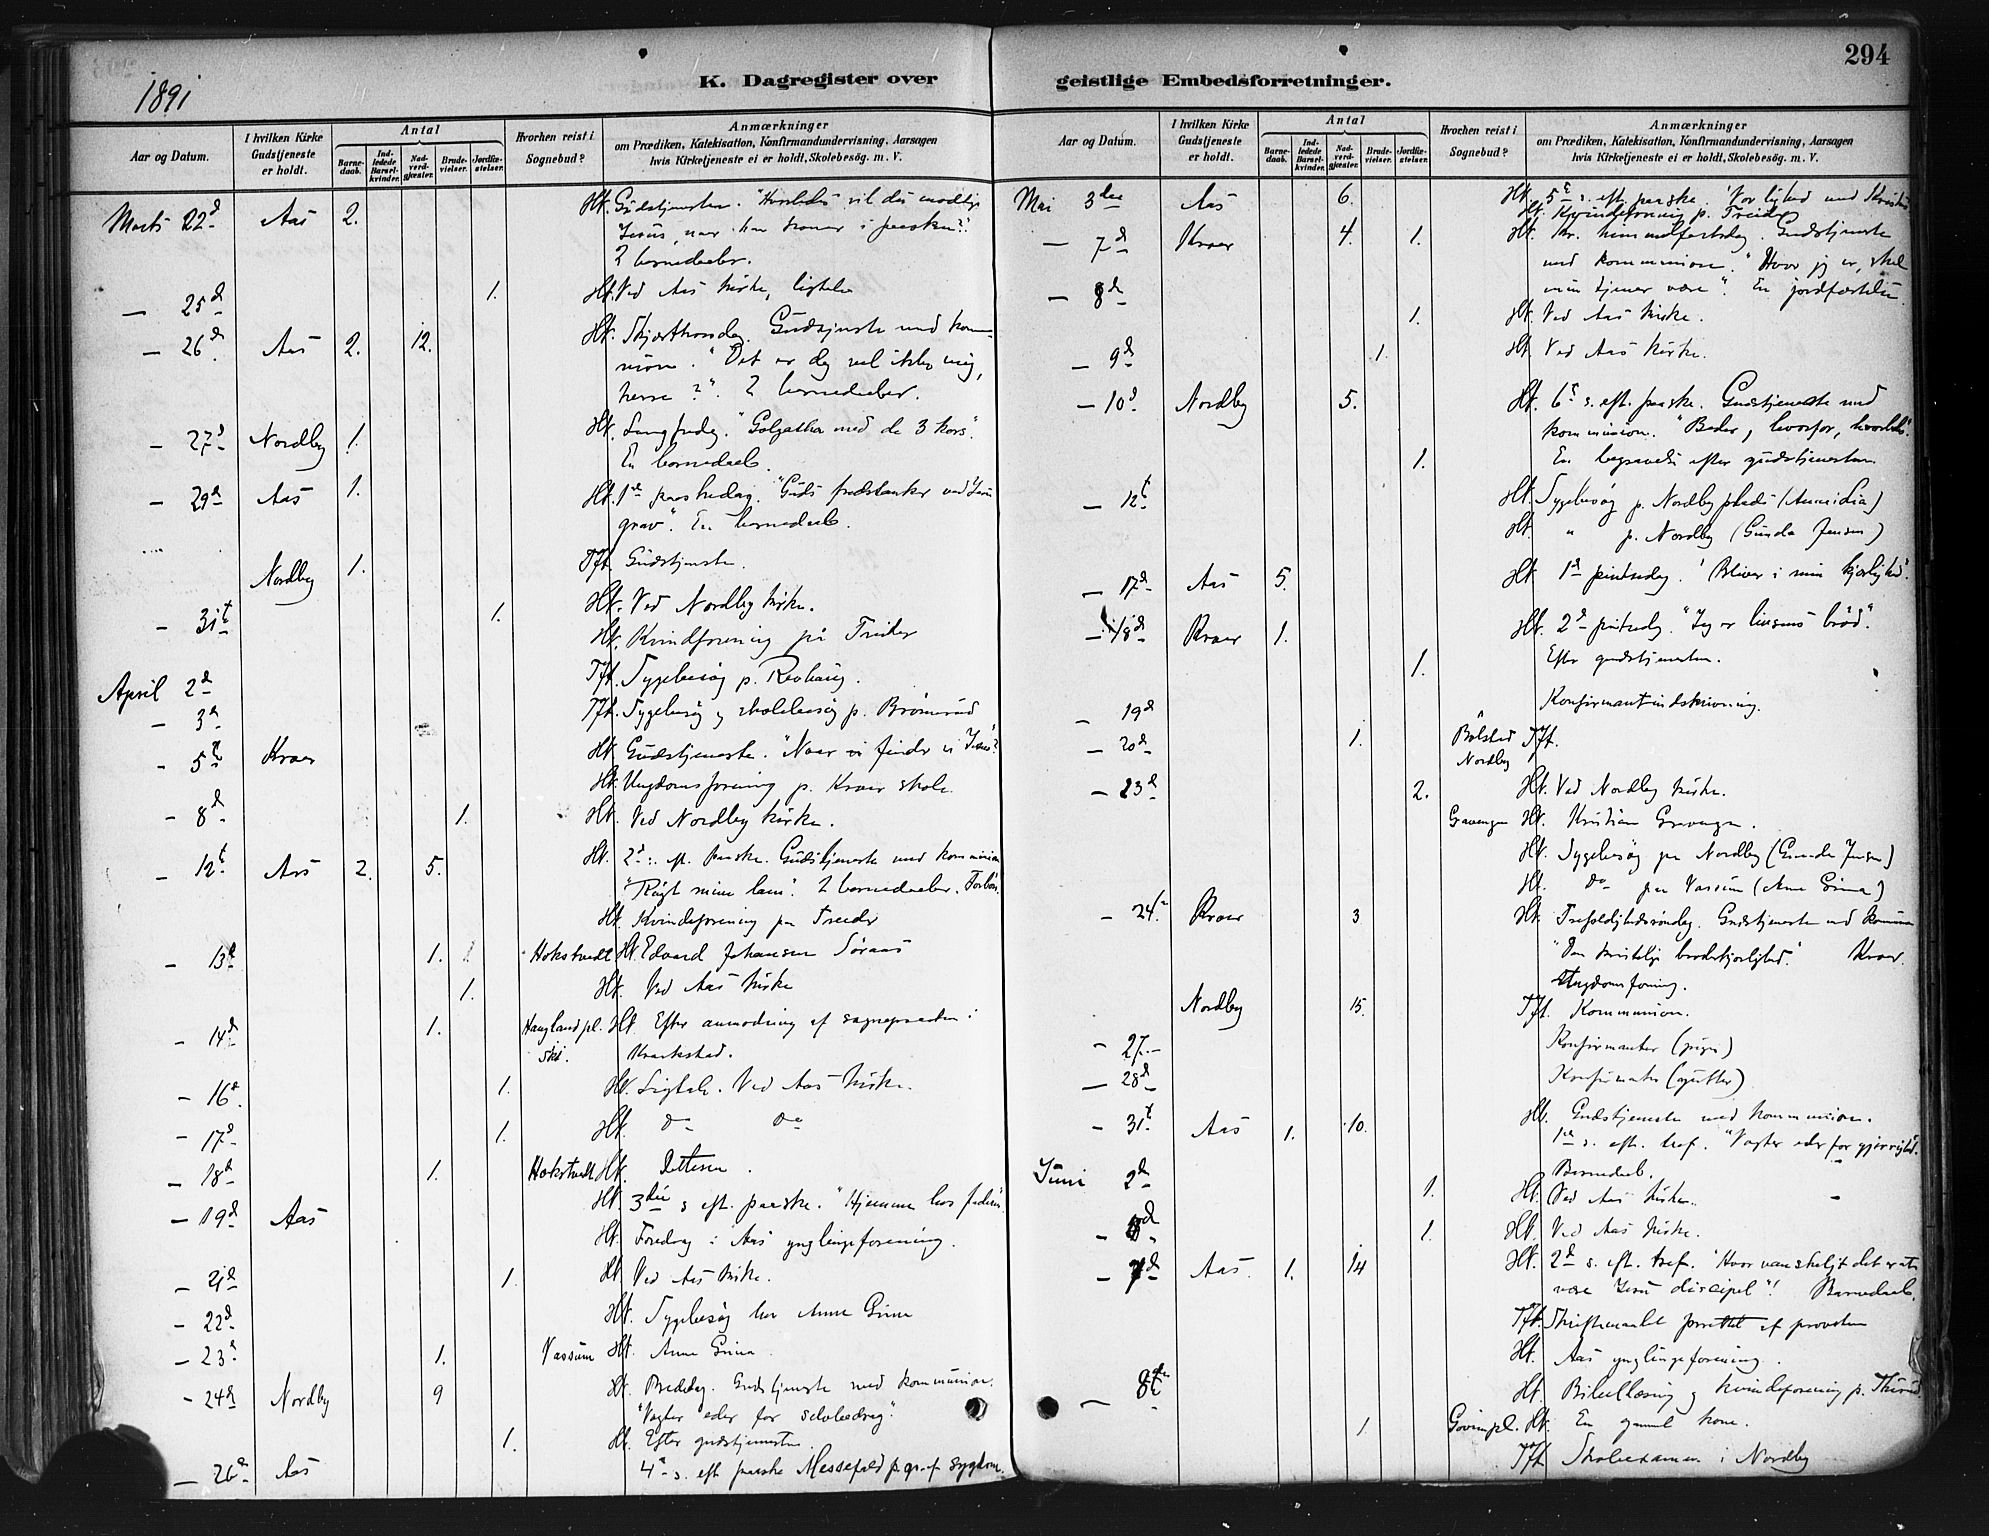 294
1891
K. Dagregister over geistlige Embedsforretninger.
Aar og Datum.
I hvilken Kirke Gudstjeneste er holdt.
Antal
Barnedaab.
Indledede Barselkvinder.
Nadverdgjæster.
Brudevielser.
Jordfæstelser.
Hvorhen reist i Sognebud?
Anmærkninger
om Prædiken, Katekisation, Konfirmandundervisning, Aarsagen
hvis Kirketjeneste ei er holdt, Skolebesög. m. V.
Marts 22d Aas 2. Ht. Gudstjenesten. "Hvorledes vil du modtage
Jesus, naar han kommer i paasken?"
2 barnedaaber.
— 25d 1. Ht. Ved Aas kirke, ligtale
— 26d Aas 2. 12. Ht. Skjærthorsdag. Gudstjeneste med kommunion.
"Det er dog vel ikke mig,
herre?" 2 barnedaaber.
— 27d Nordby 1. Ht. Langfredag. "Golgatha med de 3 kors".
En barnedaab.
— 29d Aas 1. Ht. 1ste paaskedag. "Guds fredstanker ved Jesu
grav". En barnedaab.
Nordby 1. Tft. Gudstjeneste.
— 31t 1. Ht. Ved Nordby kirke.
Ht. Kvindforening på Treider
April 2d Tft. Sygebesøg p. Revhaug.
— 3d Tft. Sygebesøg og skolebesøg p. Brönerud
— 5t Kroer Ht. Gudstjeneste. "Naar vi finder vi Jesus?"
Ht. Ungdomsforening p. Kroer skole.
— 8d 1. Ht. Ved Nordby kirke.
— 12t Aas 2. 5. Ht. 2d s. eft. paaske. Gudstjeneste med kommunion
"Røgt mine lam". 2 barnedaaber. Forbøn.
Ht. Kvindeforening paa Treider
— 13d 1. Hokstvedt Ht. Edvard Johansen Söraas
1. Ht. Ved Aas kirke
— 14d 1. Haugland pl. Ski. Ht. Efter anmodning af sognepresten i
Kraakstad.
— 16d 1. Ht. Ligtale. Ved Aas kirke.
— 17d 1. Ht. Do Do
— 18d 1. Hokstvedt Ht. Attesen.
— 19d Aas Ht. 3die s. eft. paaske. "Hjemme hos faderen"
Ht. Foredrag i Aas ynglingeforening.
— 21d 1. Ht Ved Aas kirke.
— 22d Ht. Sygebesøg hos Anne Grina
— 23d 1. Vassum Ht. Anne Grina
— 24d Nordby 9 Ht. Bededag. Gudstjeneste med kommunion.
"Vogter eder for selvbedrag".
1. Ht. Efter gudstjenesten
— 26d Aas 4d s. eft paaske Messefald p. gr. af sygdom.
Aar og Datum.
I hvilken Kirke Gudstjeneste er holdt.
Antal
Barnedaab.
Indledede Barselkvinder.
Nadverdgjæster.
Brudevielser.
Jordfæstelser.
Hvorhen reist i Sognebud?
Anmærkninger
om Prædiken, Katekisation, Konfirmandundervisning, Aarsagen
hvis Kirketjeneste ei er holdt, Skolebesög. m. V.
Mai 3die Aas 6. Ht. 5t s. eft. paaske. "Vor lighed med Kristus
Ht. Kvindeforening p. Treider
— 7d Kroer 4. 1. Ht. Kr. himmelfartsdag. Gudstjeneste
med kommunion. "Hvor jeg er, skal
min tjener være". En jordfæstelse
— 8d 1. Ht. Ved Aas kirke.
— 9d 1. Ht. Ved Aas kirke.
— 10d Nordby 5. Ht. 6t s. eft. paaske. Gudstjeneste med
kommunion. "Beder, hvorfor, hvorledes".
1. En begravelse efter gudstjenesten
— 12t Ht. Sygebesøg p. Nordby plads
Ht. " p. Nordby (Gunda Jensen)
— 17d Aas 5. Ht. 1ste pintsedag. "Bliver i min kjærlighed".
— 18d Kroer 1. Ht. 2d pintsedag. "Jeg er livsens bröd".
1. Efter gudstjenesten.
— 19d Konfirmantindskrivning.
— 20d 1. Bölstad Nordby Tft.
— 23d 2. Ht. Ved Nordby kirke.
Gravengen Ht. Kristian Gravengen.
Ht. Sygebesøg paa Nordby (Gunda Jensen)
Ht. Do paa Vassum (Anne Grina)
— 24d Kroer 3 Ht. Trefoldighedssöndag. Gudstjeneste med kommunion
"Den kristelige broderkjærlighed." Kroer
Ungdomsforening.
Nordby 15. Tft. Kommunion.
— 27. Konfirmanter (piger)
— 28d Konfirmanter (gutter)
— 31t Aas 1. 10. Ht. Gudstjeneste med kommunion.
1ste s. eft. tref. "Vogter eder for gjerrighed".
Barnedaab.
Juni 2d 1. Ht. Ved Aas kirke.
1. Ht. Ved Aas kirke.
— 7d Aas. 1. 14 Ht. 2d s. eft. tref. "Hvor vanskeligt det er at
være Jesu discipel"! Barnedaab.
Tft. Skriftemaalet forrettet af provsten
Ht. Aas ynglingeforening.
— 8de Ht. Bibellæsning og kvindeforening p.
1 Ht. En gammel kone.
Tft Skoleexamen i Nordby